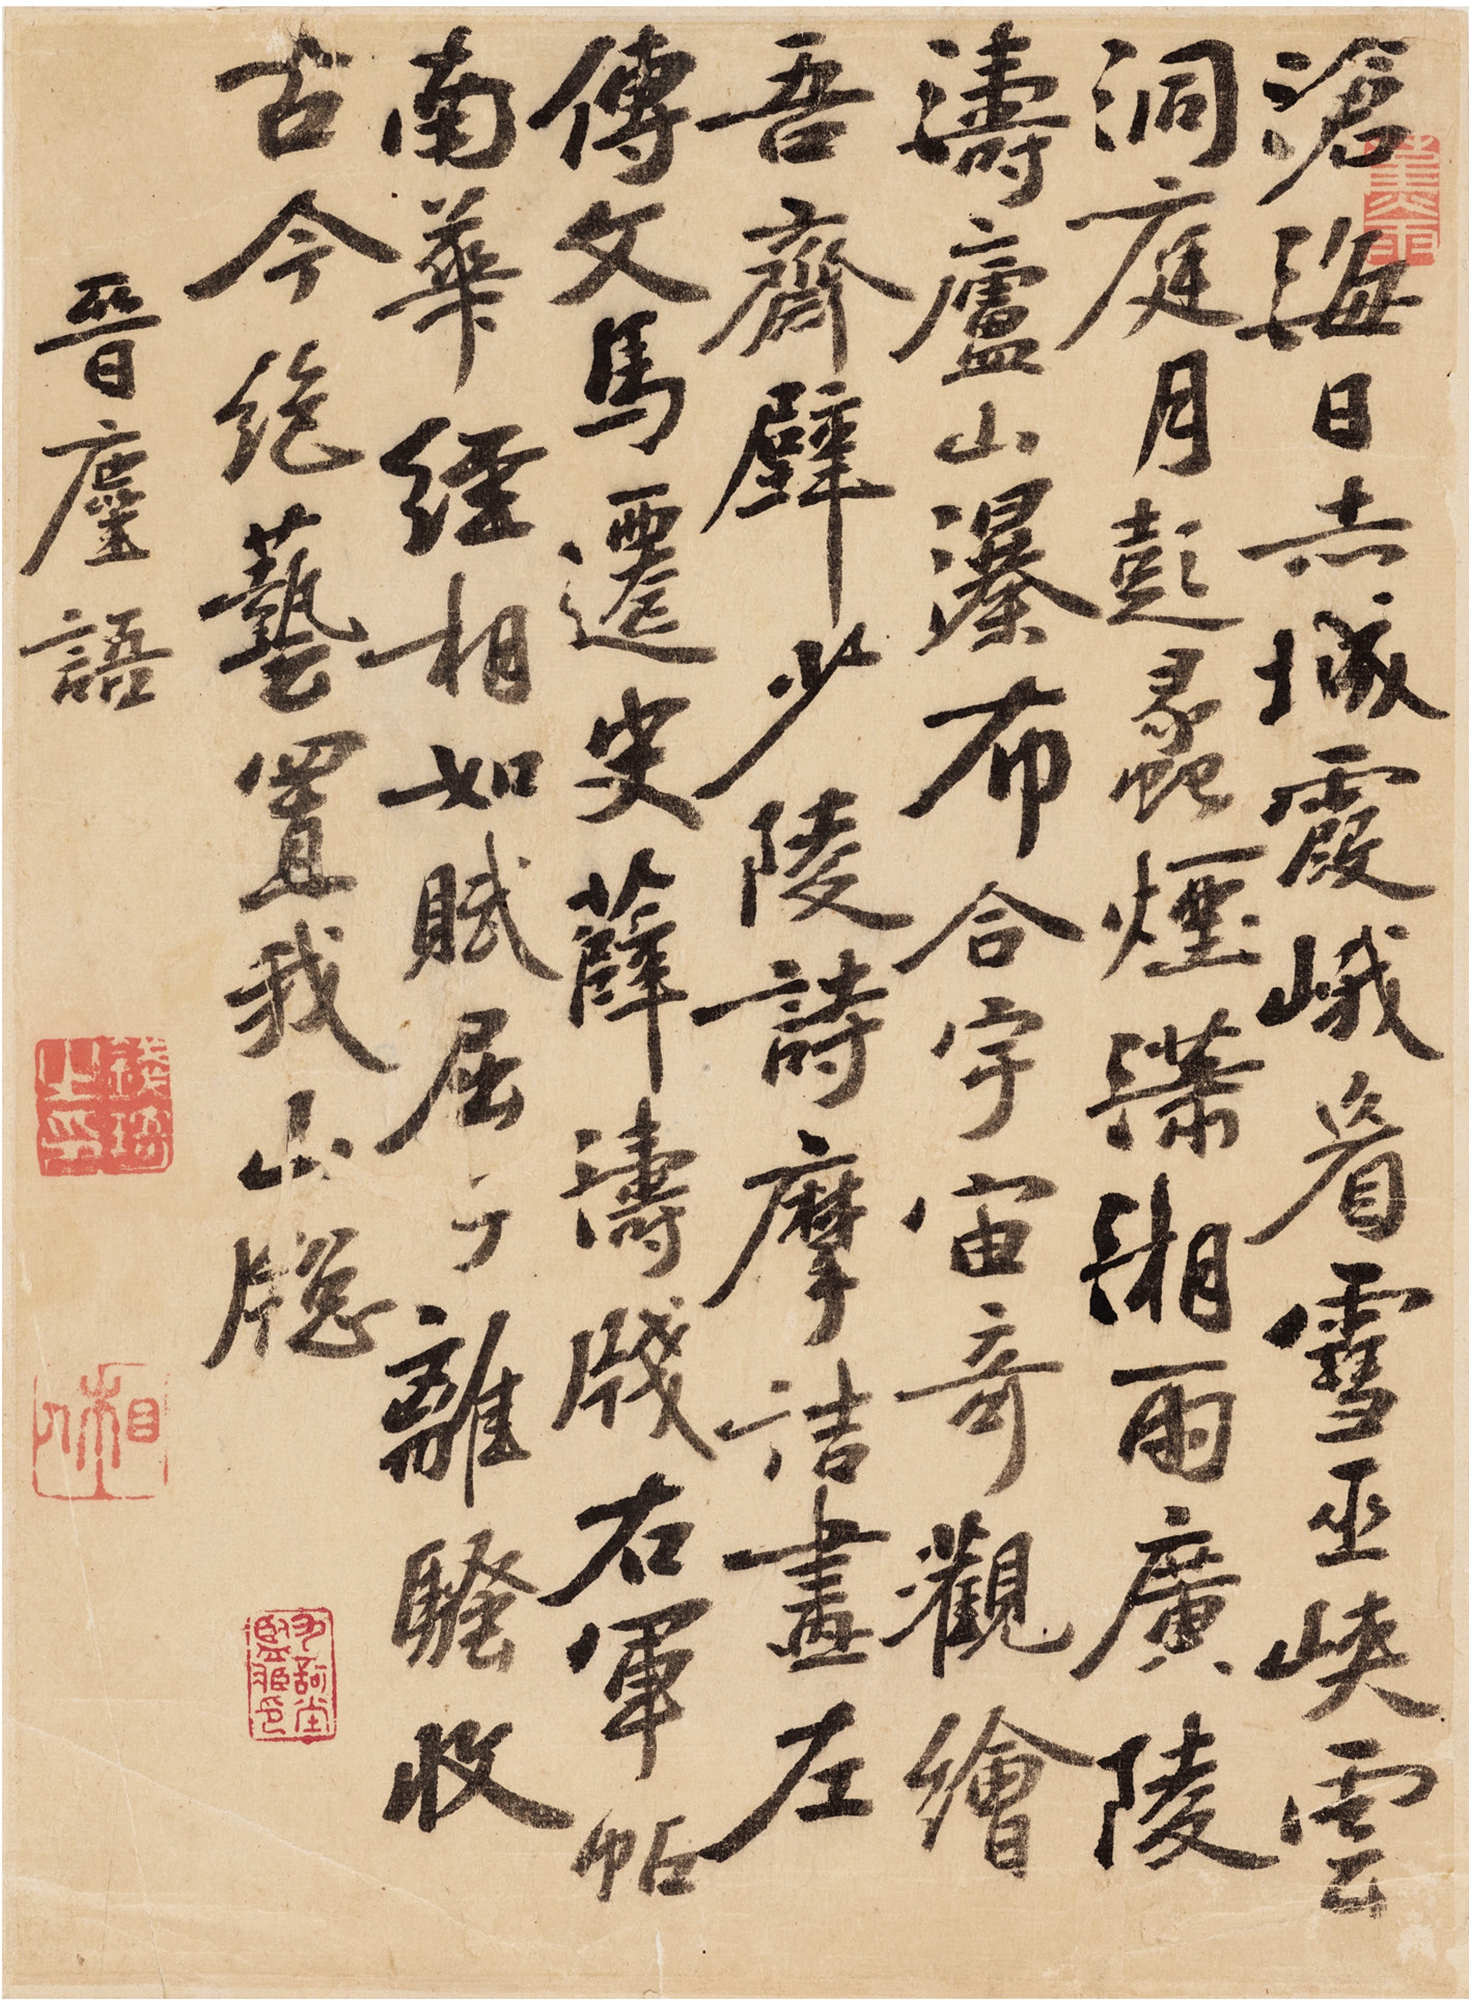 滄海日赤城霞峨眉雪巫峽雲
洞庭月彭蠡煙瀟湘雨廣陵
濤廬山瀑布合宇宙奇觀繪
吾齋壁少陵詩摩詰畫左
傳文馬遷史薛濤牋右軍帖
南華經相如賦屈子離騷收
古今絕藝置我山牕
晉塵語
相